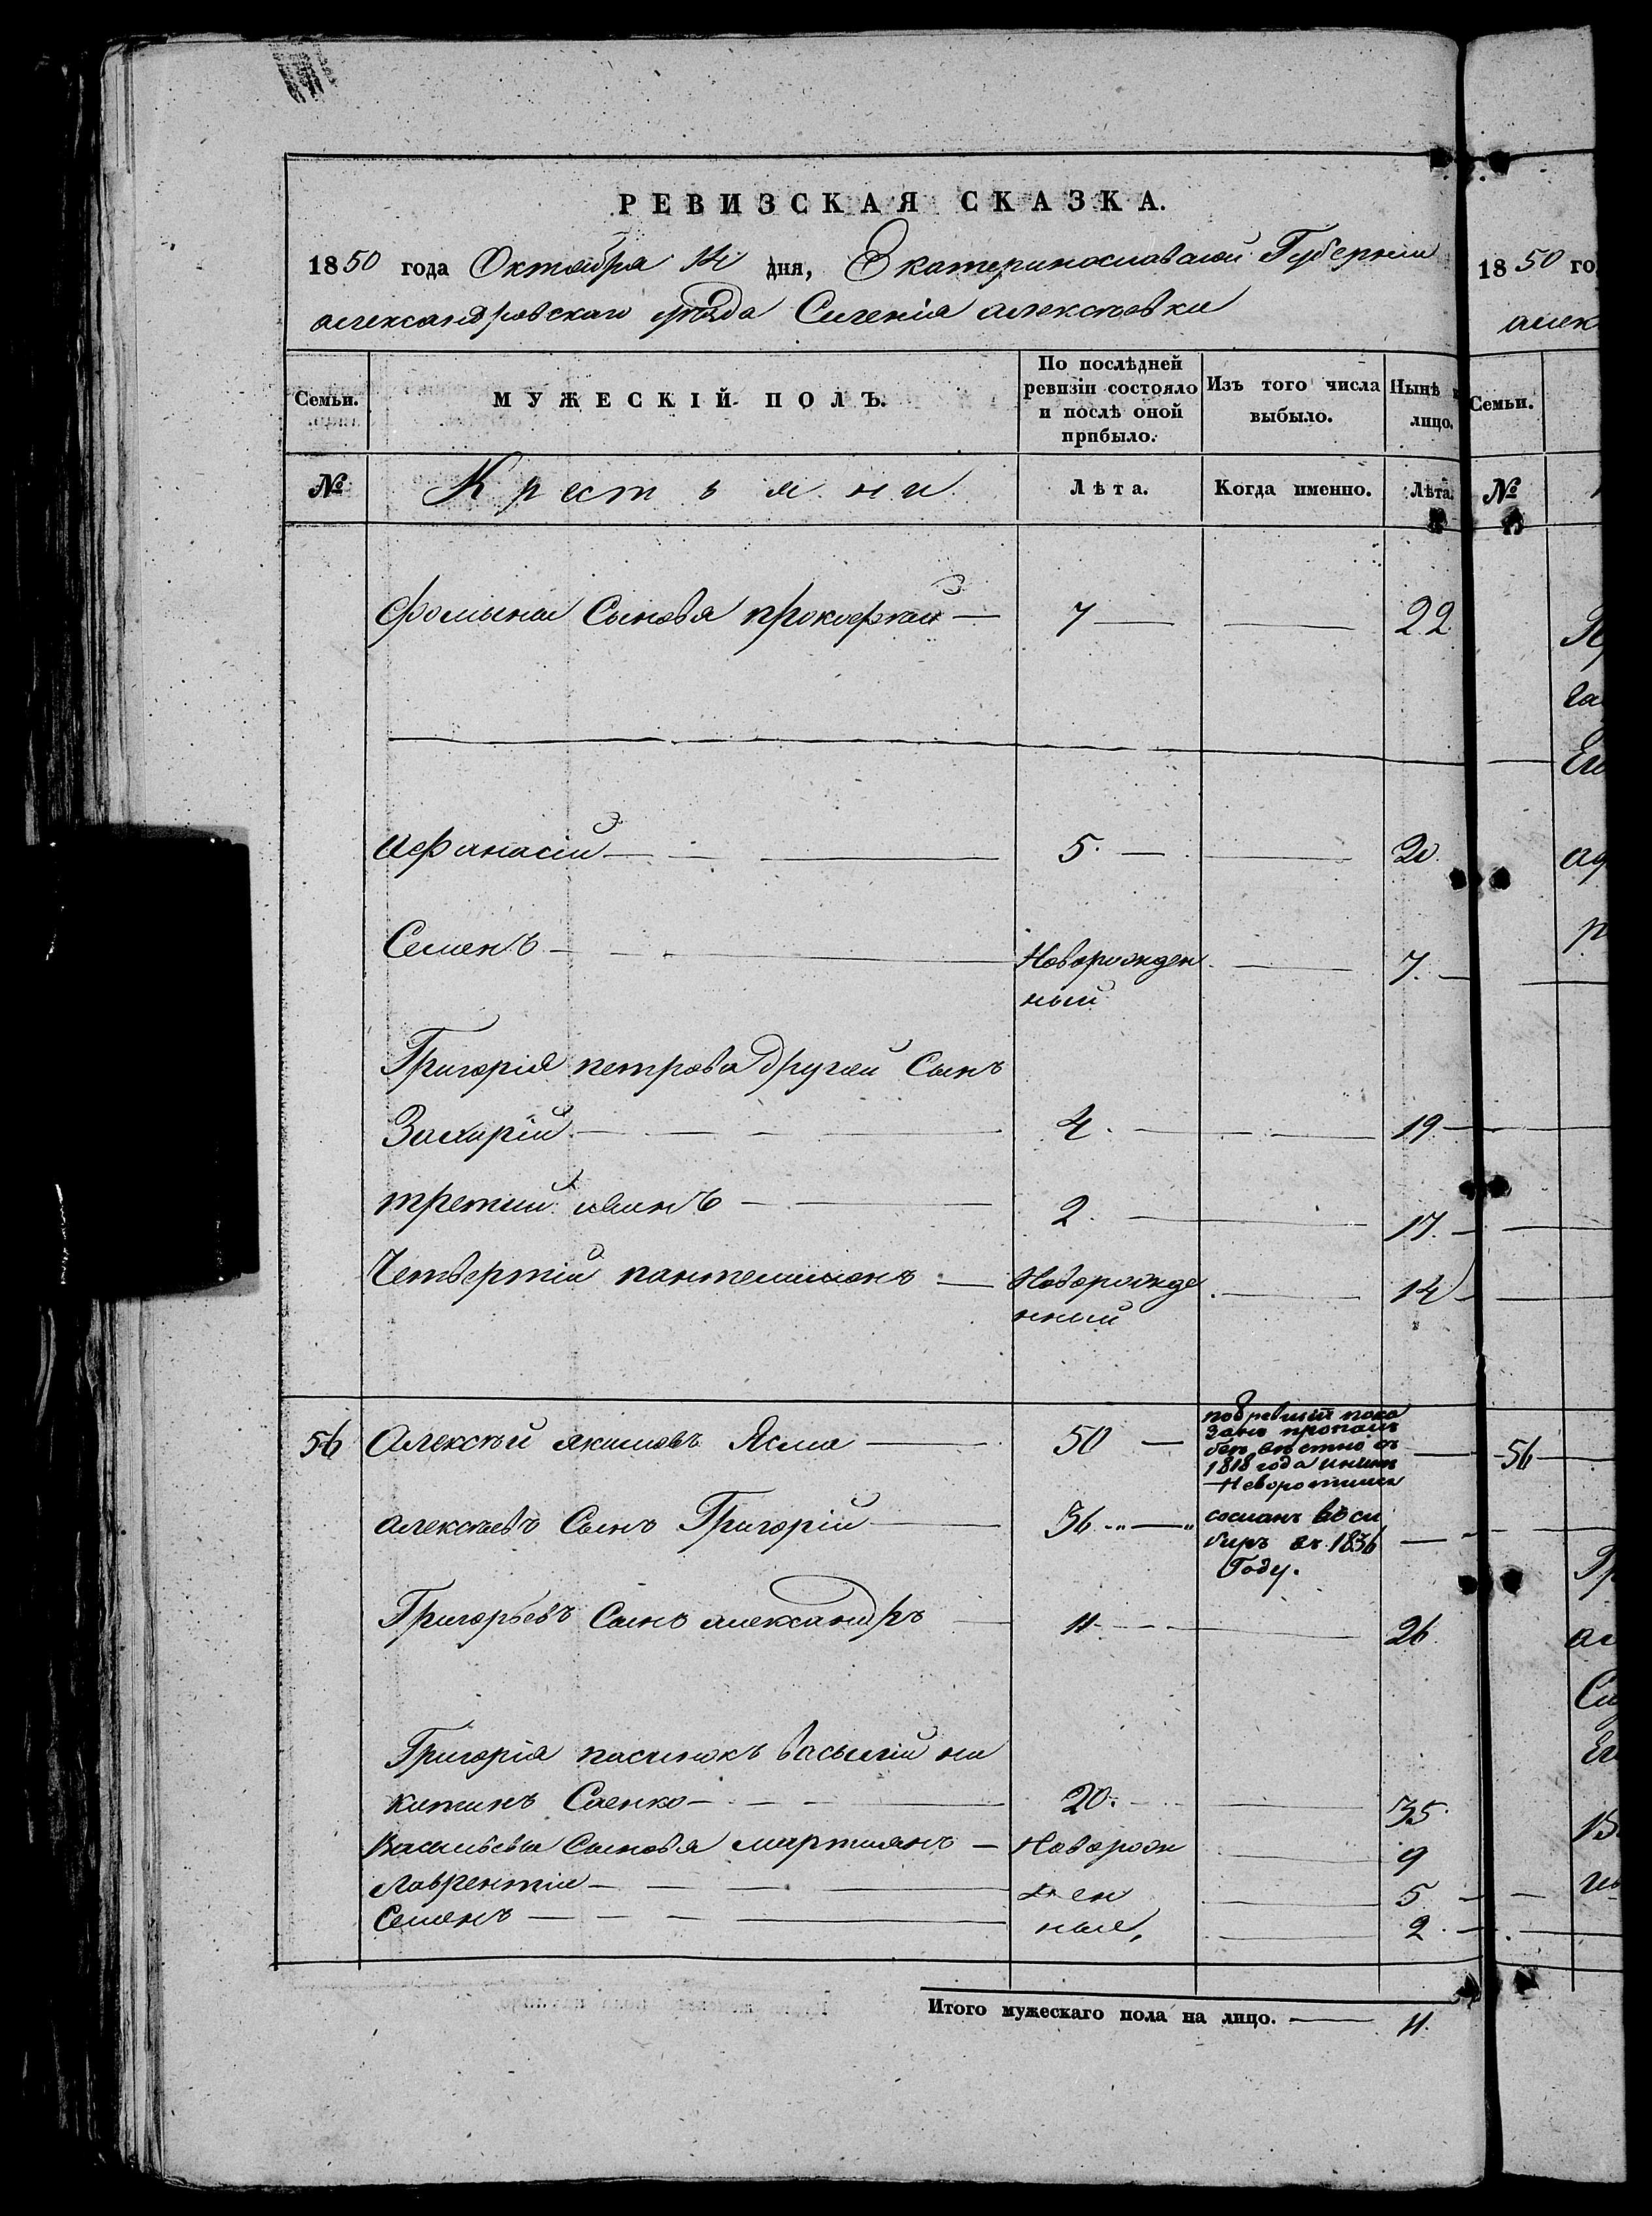 РЕВИЗСКАЯ СКАЗКА.
1850 года Октября 14 дня, Екатеринославской Губерніи
александровскаго уѣзда Селенія алексѣевки
Семьи. МУЖЕСКІЙ ПОЛЪ. По послѣдней ревизіи состояло и послѣ оной прибыло. Изъ того числа выбыло. Нынѣ на лицо.
№ Крестьяни Лѣта. Когда именно. Лѣта.
Фомины Сыновья прокофтій — 7 — — 22
афанасій — 5. — — 20.
Семенъ — Новорожден — 7. —
ный
Григорія петрова другой Сынъ
Захарій — 4. — — 19 —
третий иванъ — 2. — 17. —
Четвертій пантелимонъ — Новорожде — 14 —
нный
56 Алексѣй якимовъ Ясма — 50 —
по 8 ревизіи пока
занъ пропалъ
безъ вѣстно съ
1818 года и нынѣ
Неворотился
алексѣевъ Сынъ Григорій — 36 — сосланъ во си
биръ въ 1836 —
Году.
Григорьевъ Сынъ александръ — 11. — — 26.
Григорія пасинокъ василій ни
китинъ Саенко — 20. — 35.
Васильевы Сыновья мартиянъ — Новорож — 9
лаврентій — ден — 5
Семенъ — ные, — 2. —
Итого мужескаго пола на лицо. — 11.
1850 го
алек
Семьи.
№
56